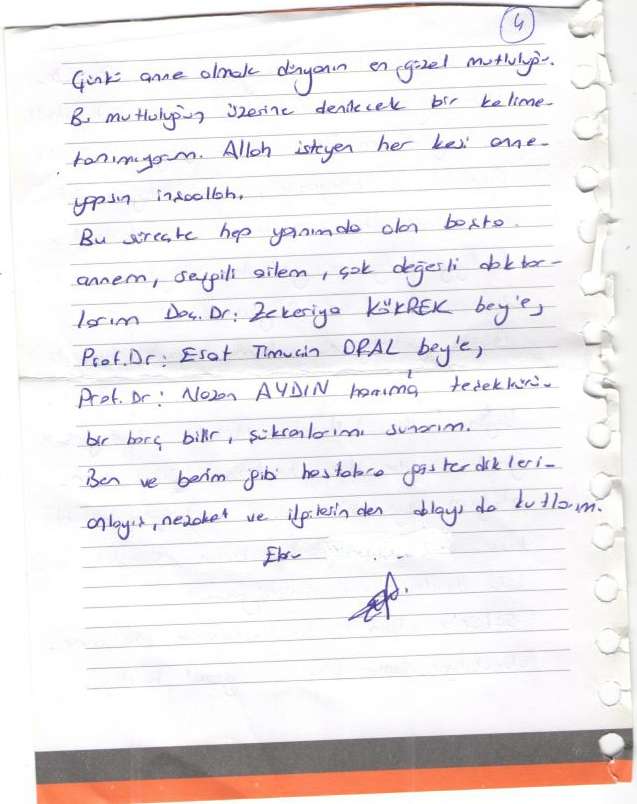 4
Çünkü anne olmak dünyanın en güzel mutluluğu.
Bu mutluluğun üzerine denilecek bir kelime
tanımıyorum. Allah isteyen her kesi anne
yapsın inşaallah.
Bu süreçte hep yanımda olan başta
annem, sevgili ailem, çok değerli doktor-
larım Doç. Dr: Zekeriya KÜKREK bey'e,
Prof. Dr: Esat Timuçin ORAL bey'e,
Prof. Dr: Nazan AYDIN hanım'a teşekkürü
bir borç bilir, şükranlarımı sunarım.
Ben ve benim gibi hastalara gösterdikleri
anlayış, nezaket ve ilgilesinden dolayı da kutlarım.
Ebru